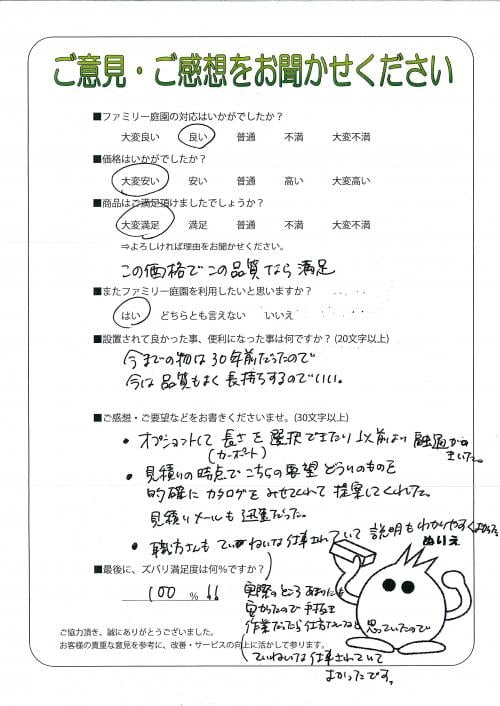 ご意見・ご感想をお聞かせください
■ファミリー庭園の対応はいかがでしたか？
大変良い 良い 普通 不満 大変不満
■価格はいかがでしたか？
大変安い 安い 普通 高い 大変高い
■商品はご満足頂けましたでしょうか？
大変満足 満足 普通 不満 大変不満
⇒よろしければ理由をお聞かせください。
この価格でこの品質なら満足
■またファミリー庭園を利用したいと思いますか？
はい どちらとも言えない いいえ
■設置されて良かった事、便利になった事は何ですか？(20文字以上)
今までの物は30年前だったので
今は品質もよく長持ちするのでいい。
■ご感想・ご要望などをお書きくださいませ。(30文字以上)
・オプションとして長さを選択できたり以前より融通がきいた。
(カーポート)
・見積りの時点でこちらの要望どういうものを
的確にカタログをみせてくれて提案してくれた。
見積りメールも迅速だった。
・職方さんもていねいな仕事されていて説明もわかりやすくよかった。
ぬいえ
■最後に、ズバリ満足度は何%ですか？
100 % !!
実際のところあまりにも
安かったので手抜き
作業だったら仕方ないなと思っていたので
ていねいな仕事されていて
よかったです。
ご協力頂き、誠にありがとうございました。
お客様の貴重な意見を参考に、改善・サービスの向上に活かして参ります。